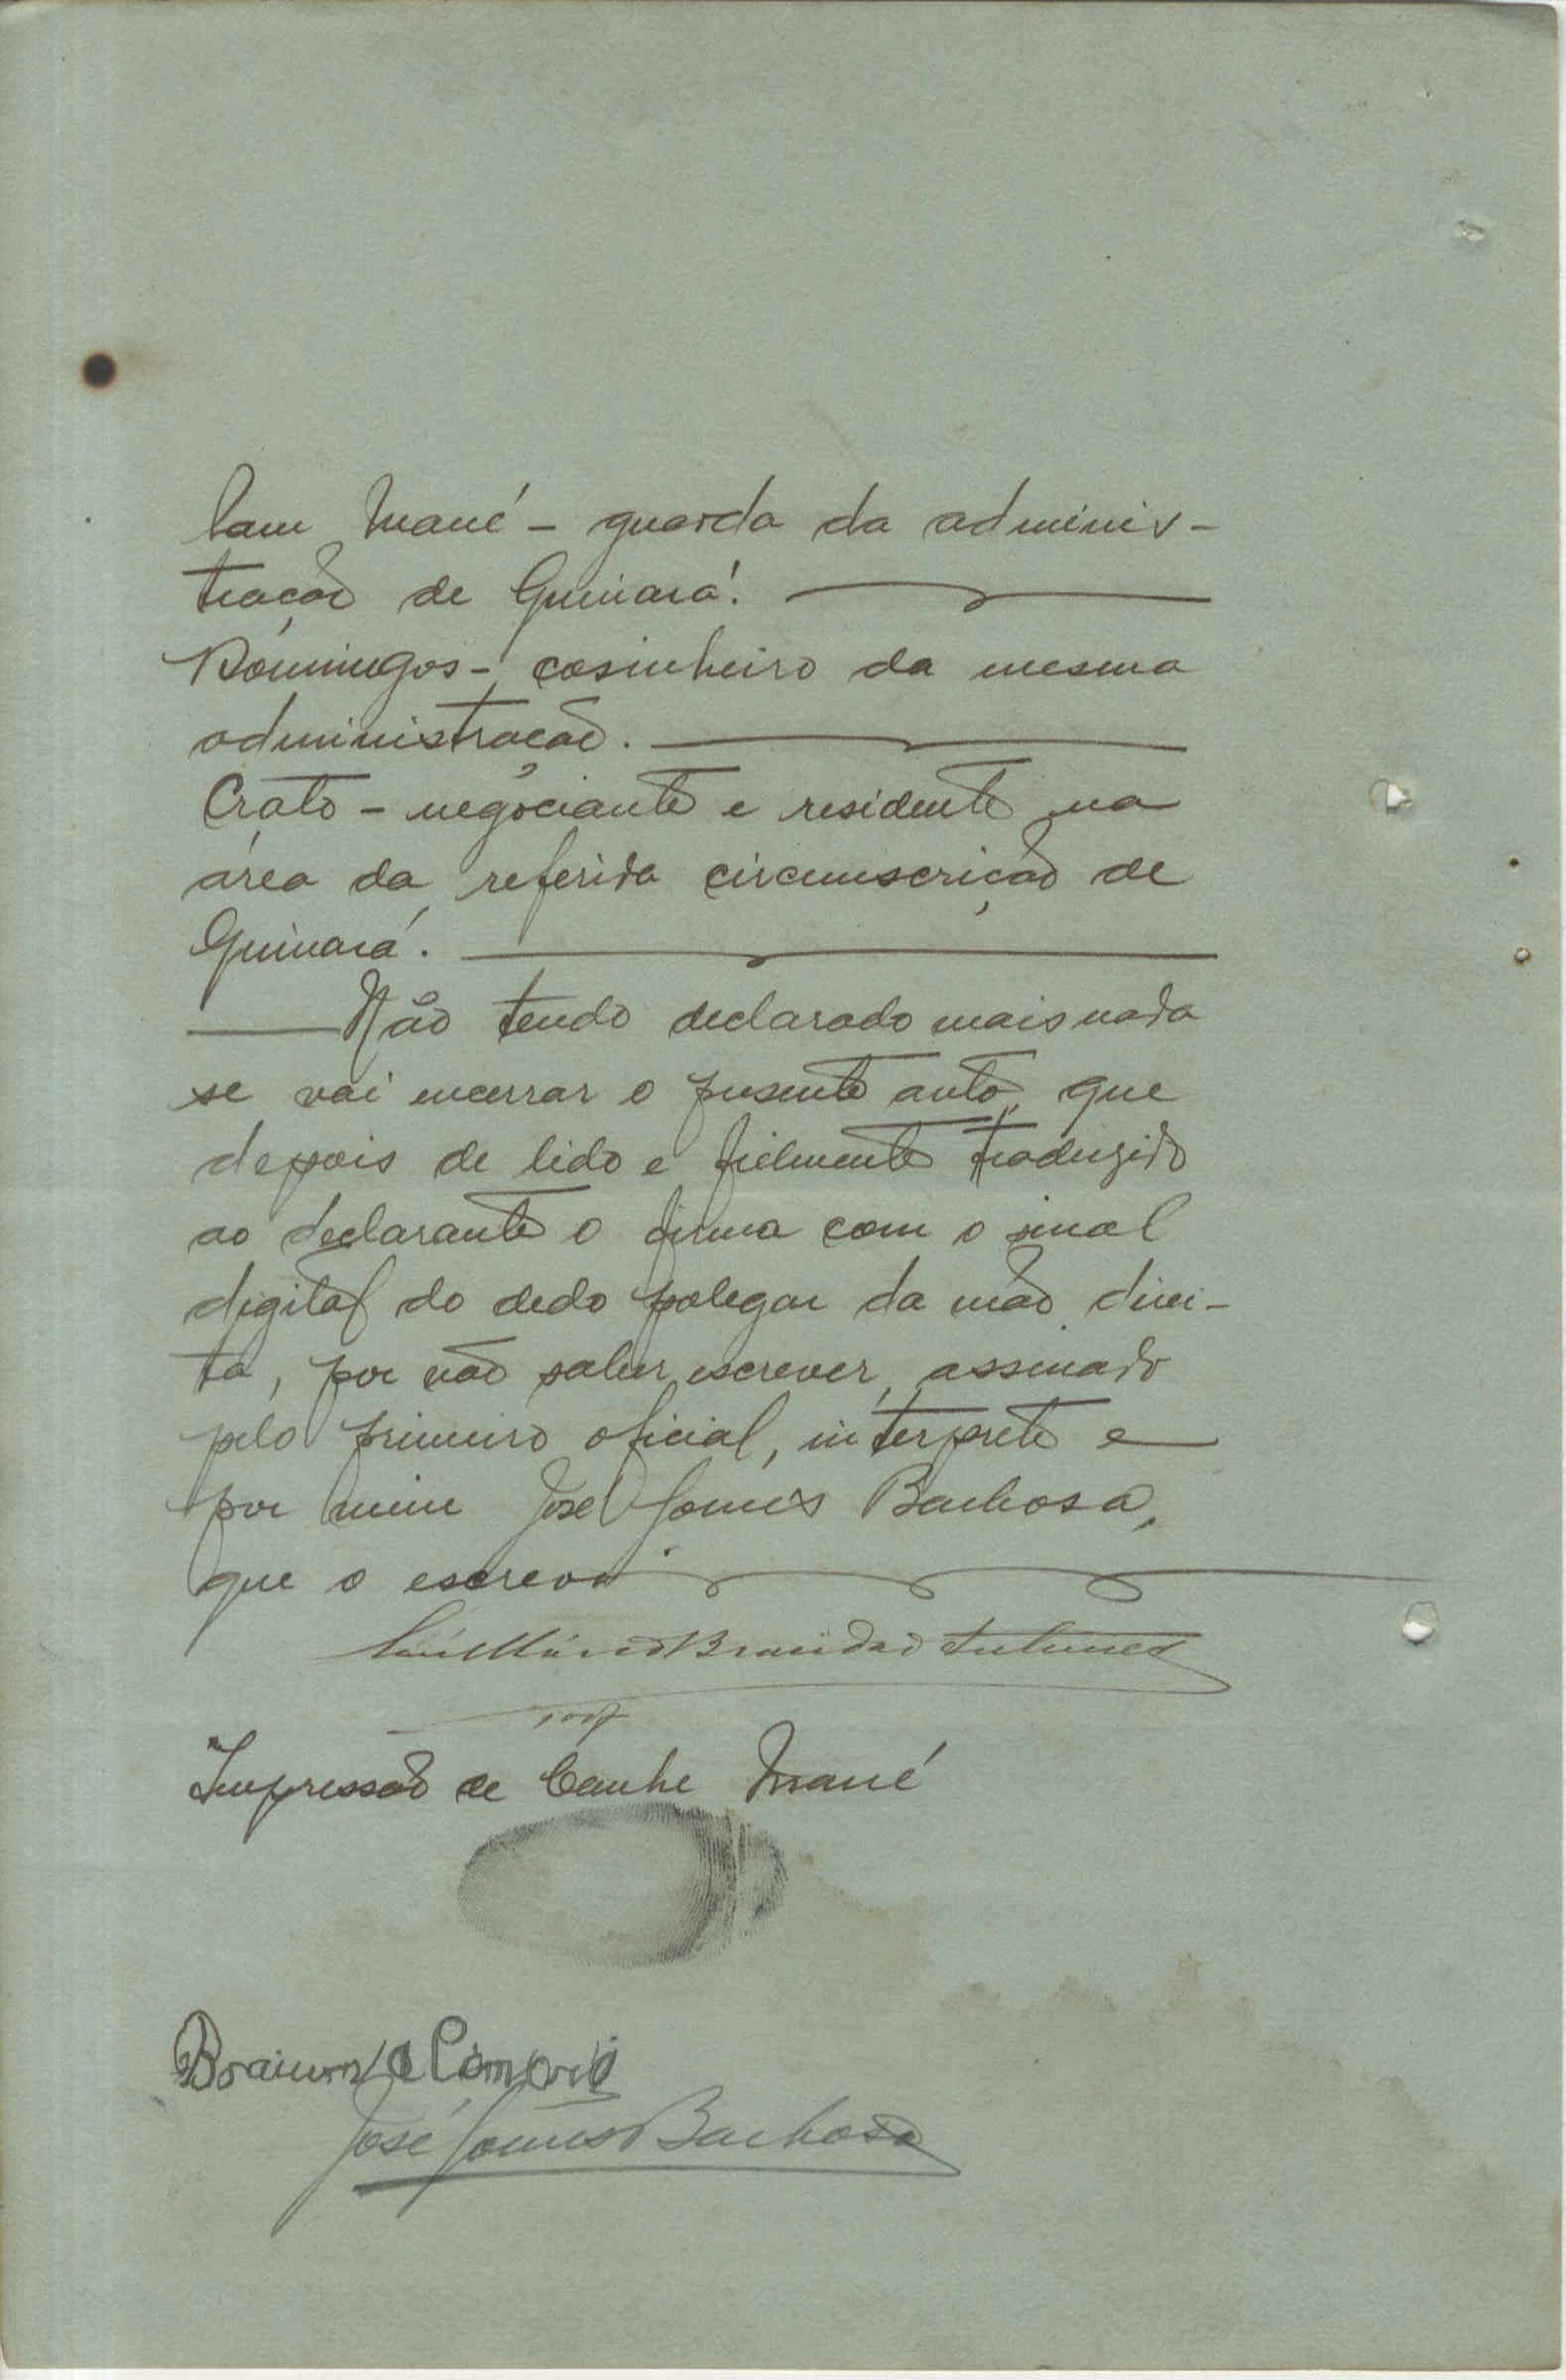 Lam Mané - guarda da adminis-
tração de Guinará.
Domingos - cosinheiro da mesma
administração.
Crato - negociante e residente na
área da referida circunscrição de
Guinará.
Não tendo declarado mais nada
se vai encerrar o presente auto, que
depois de lido e fielmente traduzido
ao declarante o firma com o sinal
digital do dedo polegar da mão direi-
ta, por não saber escrever, assinado
pelo primeiro oficial, intérprete e
por mim José Gomes Barbosa,
que o escrevi
Brandão Antunes
Impressão de Canhe Mané
José Gomes Barbosa